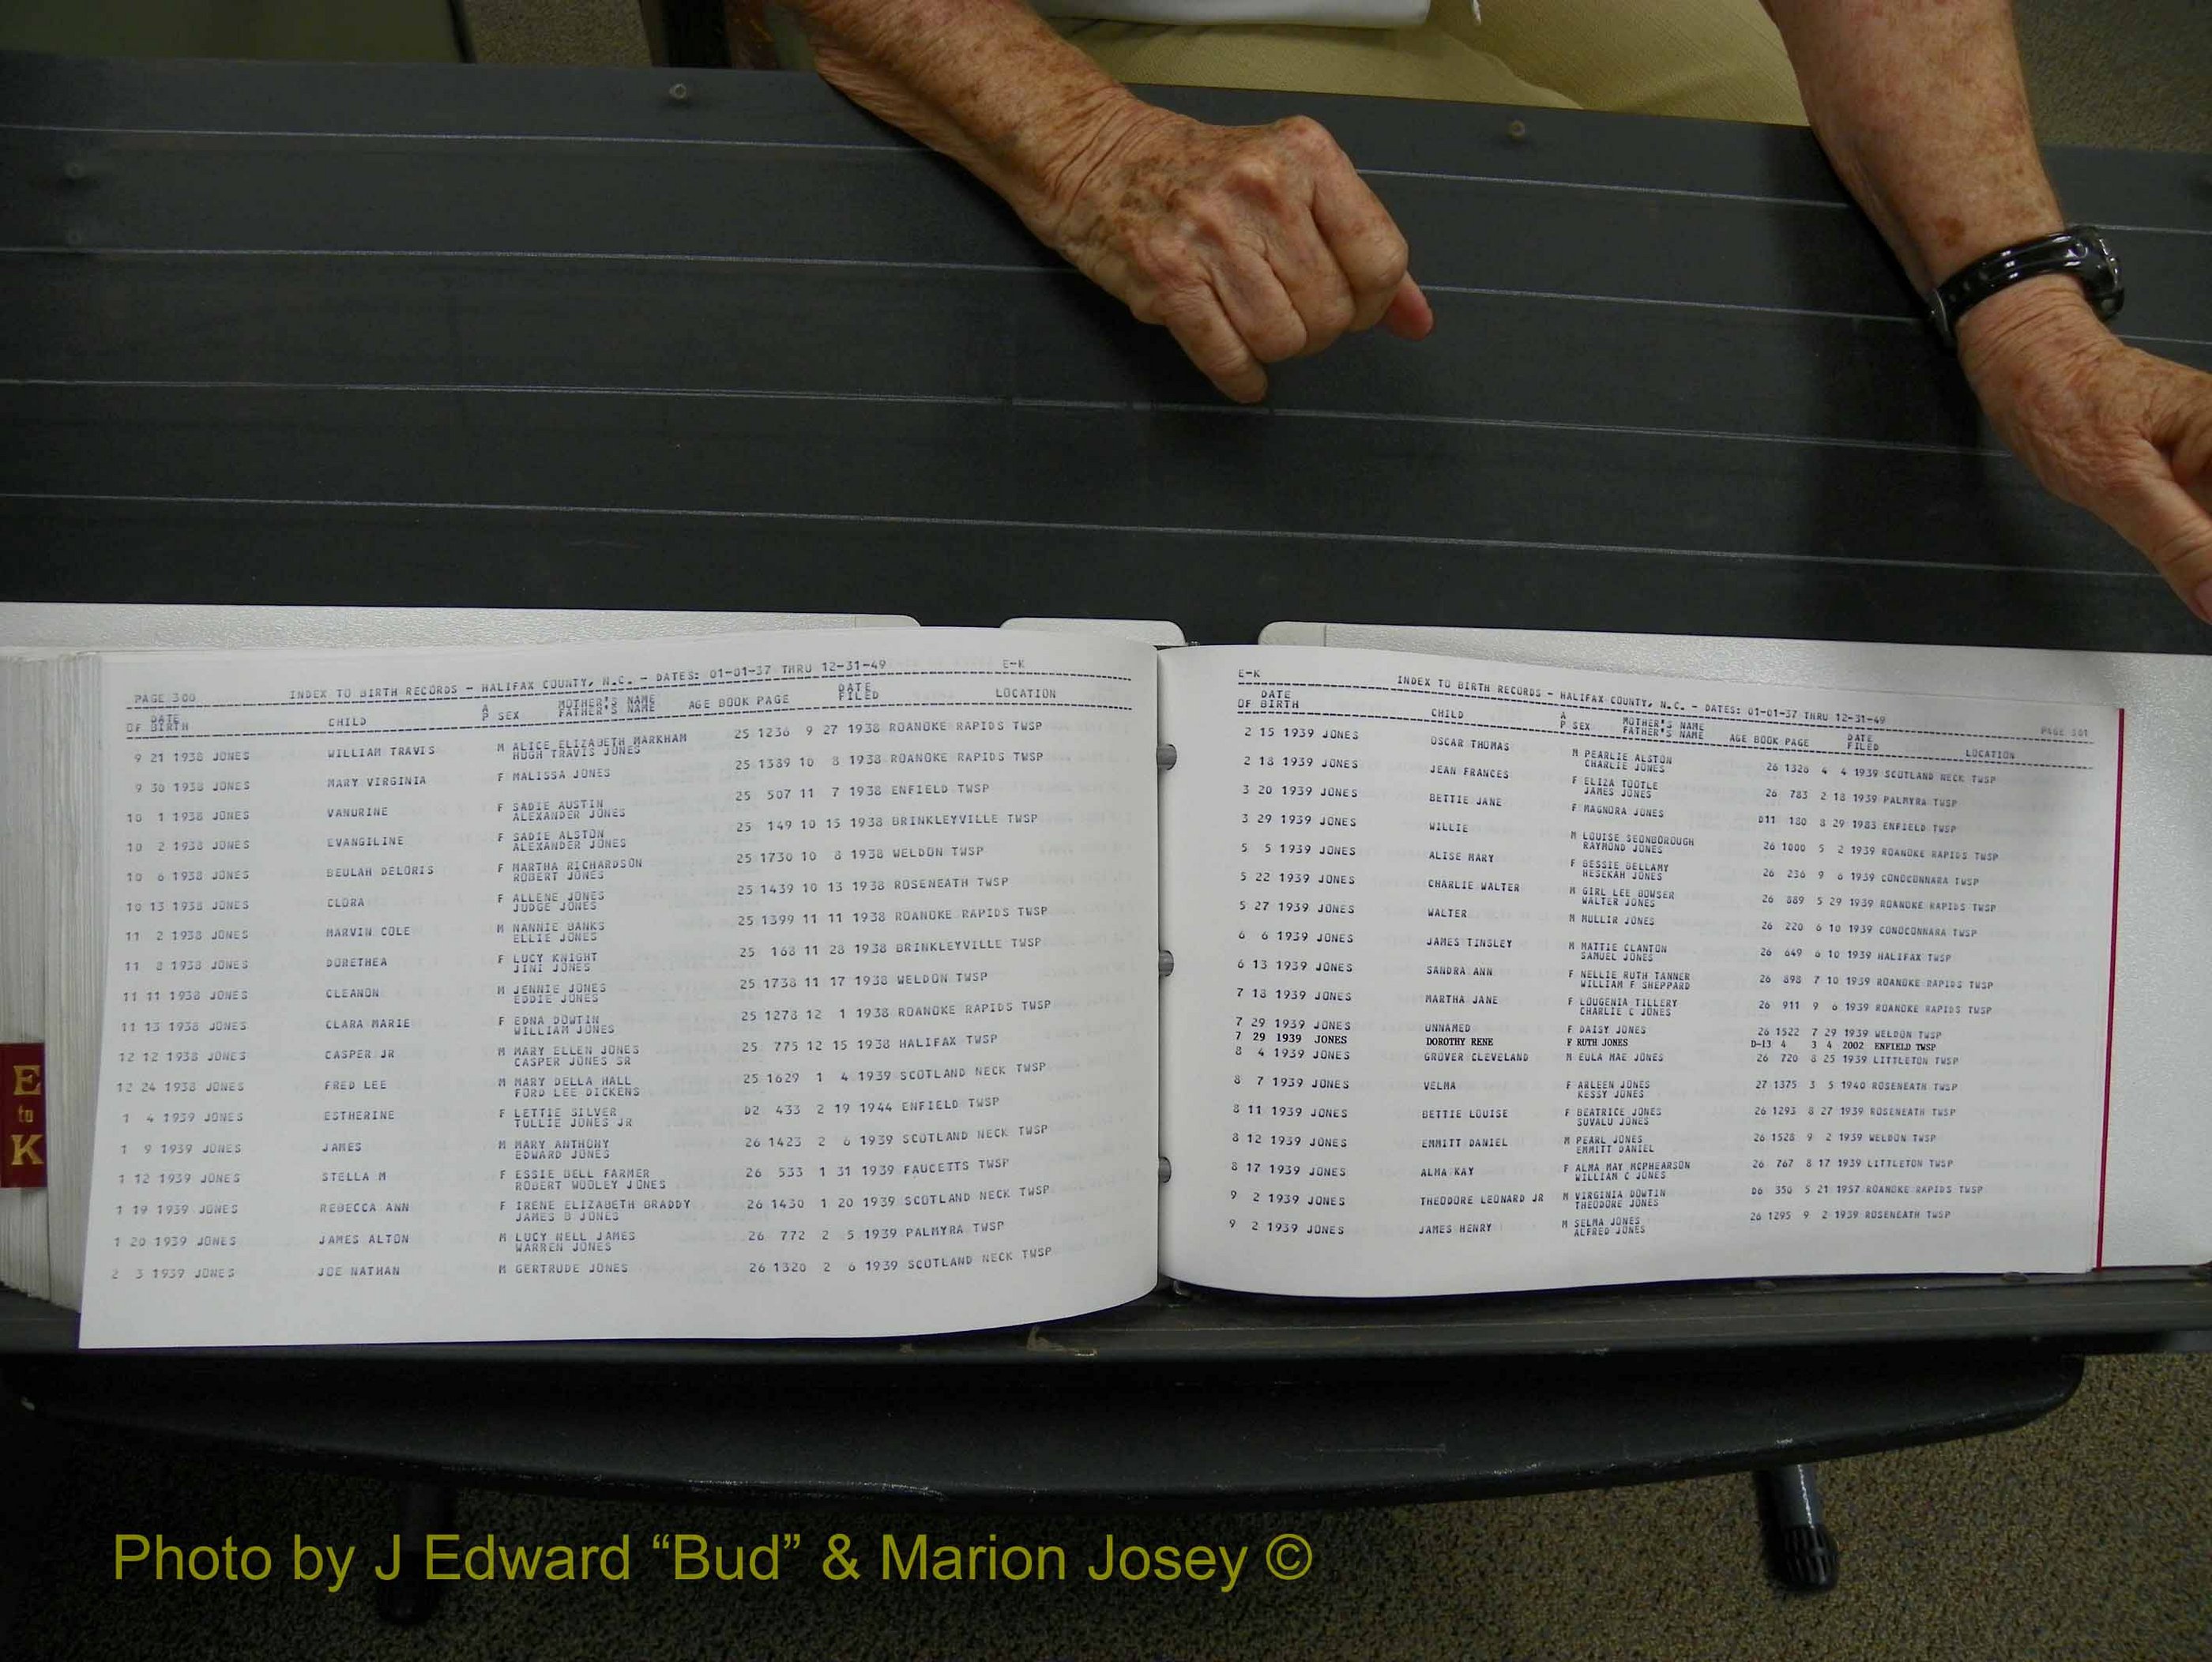 PAGE 300 INDEX TO BIRTH RECORDS - HALIFAX COUNTY, N.C. - DATES: 01-01-37 THRU 12-31-49 E-K
DATE OF BIRTH CHILD A P SEX MOTHER'S NAME FATHER'S NAME AGE BOOK PAGE DATE FILED LOCATION
9 21 1938 JONES WILLIAM TRAVIS M ALICE ELIZABETH MARKHAM 25 1236 9 27 1938 ROANOKE RAPIDS TWSP
HUGH TRAVIS JONES
9 30 1938 JONES MARY VIRGINIA F MALISSA JONES 25 1389 10 8 1938 ROANOKE RAPIDS TWSP
10 1 1938 JONES VANURINE F SADIE AUSTIN 25 507 11 7 1938 ENFIELD TWSP
ALEXANDER JONES
10 2 1938 JONES EVANGILINE F SADIE ALSTON 25 149 10 15 1938 BRINKLEYVILLE TWSP
ALEXANDER JONES
10 6 1938 JONES BEULAH DELORIS F MARTHA RICHARDSON 25 1730 10 8 1938 WELDON TWSP
ROBERT JONES
10 13 1938 JONES CLORA F ALLENE JONES 25 1439 10 13 1938 ROSENEATH TWSP
JUDGE JONES
11 2 1938 JONES MARVIN COLE M NANNIE BANKS 25 1399 11 11 1938 ROANOKE RAPIDS TWSP
ELLIE JONES
11 8 1938 JONES DORETHEA F LUCY KNIGHT 25 168 11 28 1938 BRINKLEYVILLE TWSP
JINI JONES
11 11 1938 JONES CLEANON M JENNIE JONES 25 1738 11 17 1938 WELDON TWSP
EDDIE JONES
11 13 1938 JONES CLARA MARIE F EDNA DOWTIN 25 1278 12 1 1938 ROANOKE RAPIDS TWSP
WILLIAM JONES
12 12 1938 JONES CASPER JR M MARY ELLEN JONES 25 775 12 15 1938 HALIFAX TWSP
CASPER JONES SR
12 24 1938 JONES FRED LEE M MARY DELLA HALL 25 1629 1 4 1939 SCOTLAND NECK TWSP
FORD LEE DICKENS
1 4 1939 JONES ESTHERINE F LETTIE SILVER D2 433 2 19 1944 ENFIELD TWSP
TULLIE JONES JR
1 9 1939 JONES JAMES M MARY ANTHONY 26 1423 2 6 1939 SCOTLAND NECK TWSP
EDWARD JONES
1 12 1939 JONES STELLA M F ESSIE BELL FARMER 26 533 1 31 1939 FAUCETTS TWSP
ROBERT WOOLEY JONES
1 19 1939 JONES REBECCA ANN F IRENE ELIZABETH BRADDY 26 1430 1 20 1939 SCOTLAND NECK TWSP
JAMES B JONES
1 20 1939 JONES JAMES ALTON M LUCY NELL JAMES 26 772 2 5 1939 PALMYRA TWSP
WARREN JONES
2 3 1939 JONES JOE NATHAN M GERTRUDE JONES 26 1320 2 6 1939 SCOTLAND NECK TWSP
E to K
E-K INDEX TO BIRTH RECORDS - HALIFAX COUNTY, N.C. - DATES: 01-01-37 THRU 12-31-49 PAGE 301
DATE OF BIRTH CHILD A P SEX MOTHER'S NAME FATHER'S NAME AGE BOOK PAGE DATE FILED LOCATION
2 15 1939 JONES OSCAR THOMAS M PEARLIE ALSTON 26 1326 4 4 1939 SCOTLAND NECK TWSP
CHARLIE JONES
2 18 1939 JONES JEAN FRANCES F ELIZA TOOTLE 26 783 2 18 1939 PALMYRA TWSP
JAMES JONES
3 20 1939 JONES BETTIE JANE F MAGNORA JONES D11 180 8 29 1983 ENFIELD TWSP
3 29 1939 JONES WILLIE M LOUISE SEONBOROUGH 26 1000 5 2 1939 ROANOKE RAPIDS TWSP
RAYMOND JONES
5 5 1939 JONES ALISE MARY F BESSIE BELLAMY 26 236 9 6 1939 CONOCONNARA TWSP
HESEKAH JONES
5 22 1939 JONES CHARLIE WALTER M GIRL LEE BOWSER 26 889 5 29 1939 ROANOKE RAPIDS TWSP
WALTER JONES
5 27 1939 JONES WALTER M MULLIR JONES 26 220 6 10 1939 CONOCONNARA TWSP
6 6 1939 JONES JAMES TINSLEY M MATTIE CLANTON 26 649 6 10 1939 HALIFAX TWSP
SAMUEL JONES
6 13 1939 JONES SANDRA ANN F NELLIE RUTH TANNER 26 898 7 10 1939 ROANOKE RAPIDS TWSP
WILLIAM F SHEPPARD
7 18 1939 JONES MARTHA JANE F LOUGENIA TILLERY 26 911 9 6 1939 ROANOKE RAPIDS TWSP
CHARLIE C JONES
7 29 1939 JONES UNNAMED F DAISY JONES 26 1522 7 29 1939 WELDON TWSP
7 29 1939 JONES DOROTHY RENE F RUTH JONES D-13 4 3 4 2002 ENFIELD TWSP
8 4 1939 JONES GROVER CLEVELAND M EULA MAE JONES 26 720 8 25 1939 LITTLETON TWSP
8 7 1939 JONES VELMA F ARLEEN JONES 27 1375 3 5 1940 ROSENEATH TWSP
KESSY JONES
8 11 1939 JONES BETTIE LOUISE F BEATRICE JONES 26 1293 8 27 1939 ROSENEATH TWSP
SUVALU JONES
8 12 1939 JONES EMMITT DANIEL M PEARL JONES 26 1528 9 2 1939 WELDON TWSP
EMMITT DANIEL
8 17 1939 JONES ALMA KAY F ALMA MAY MCPHEARSON 26 767 8 17 1939 LITTLETON TWSP
WILLIAM C JONES
9 2 1939 JONES THEODORE LEONARD JR M VIRGINIA DOWTIN D6 350 5 21 1957 ROANOKE RAPIDS TWSP
THEODORE JONES
9 2 1939 JONES JAMES HENRY M SELMA JONES 26 1295 9 2 1939 ROSENEATH TWSP
ALFRED JONES
Photo by J Edward “Bud” & Marion Josey ©